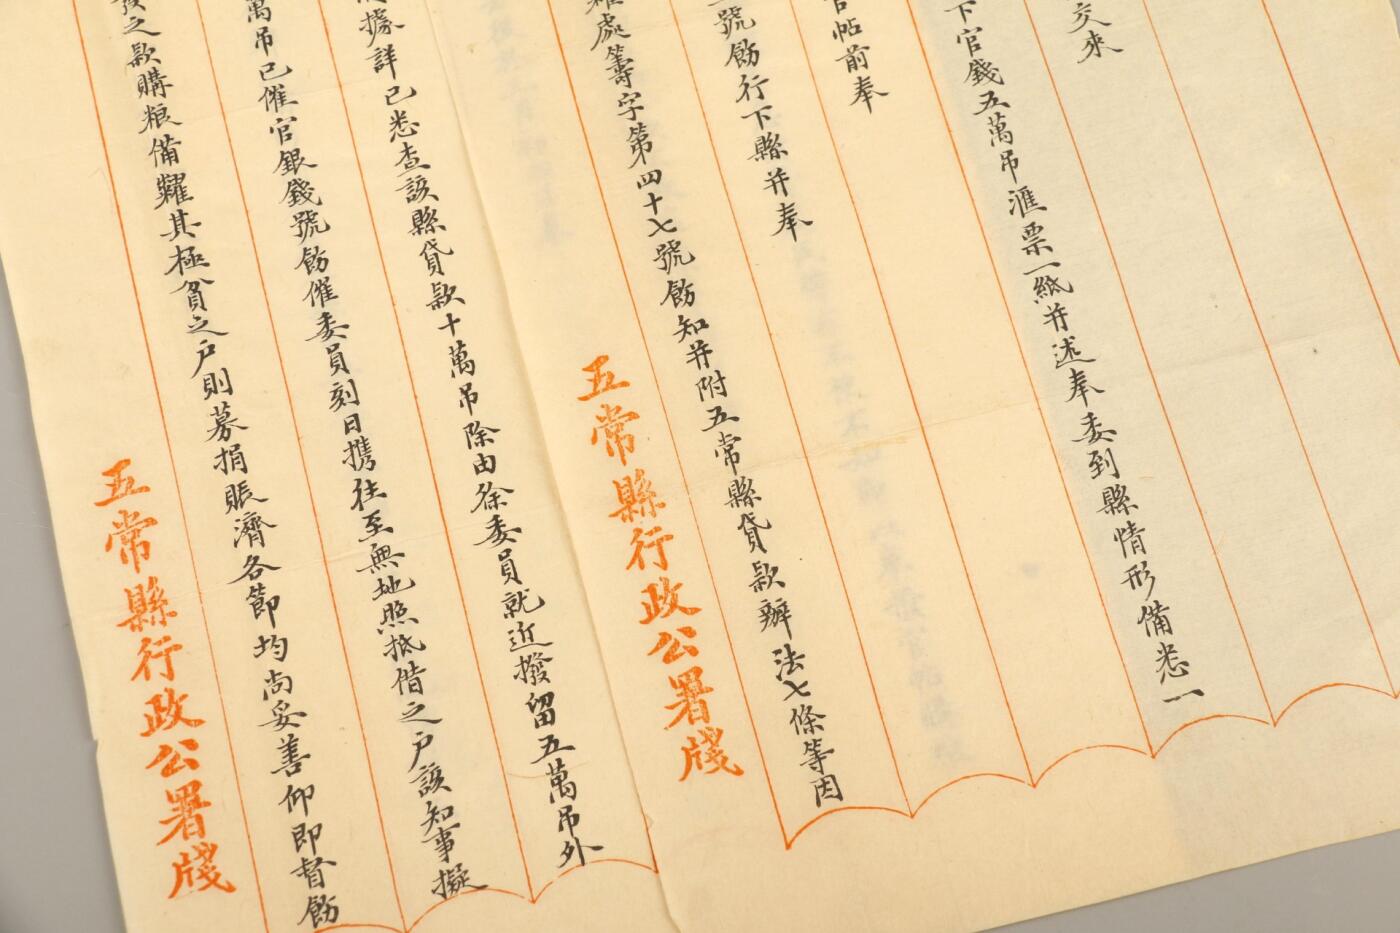 交來
下官錢五萬吊滙票一紙并述奉委到縣情形備悉一
官帖前奉
號飭行下縣并奉
處籌字第四十七號飭知并附五常縣貸款辦法七條等因
五常縣行政公署牋
據詳已悉查該縣貸款十萬吊除由徐委員就近撥留五萬吊外
萬吊已催官銀錢號飭催委員刻日携往至無地照抵借之户該知事擬
之款購粮備糶其極貧之户則募捐賬濟各節均尚妥善仰即督飭
五常縣行政公署牋